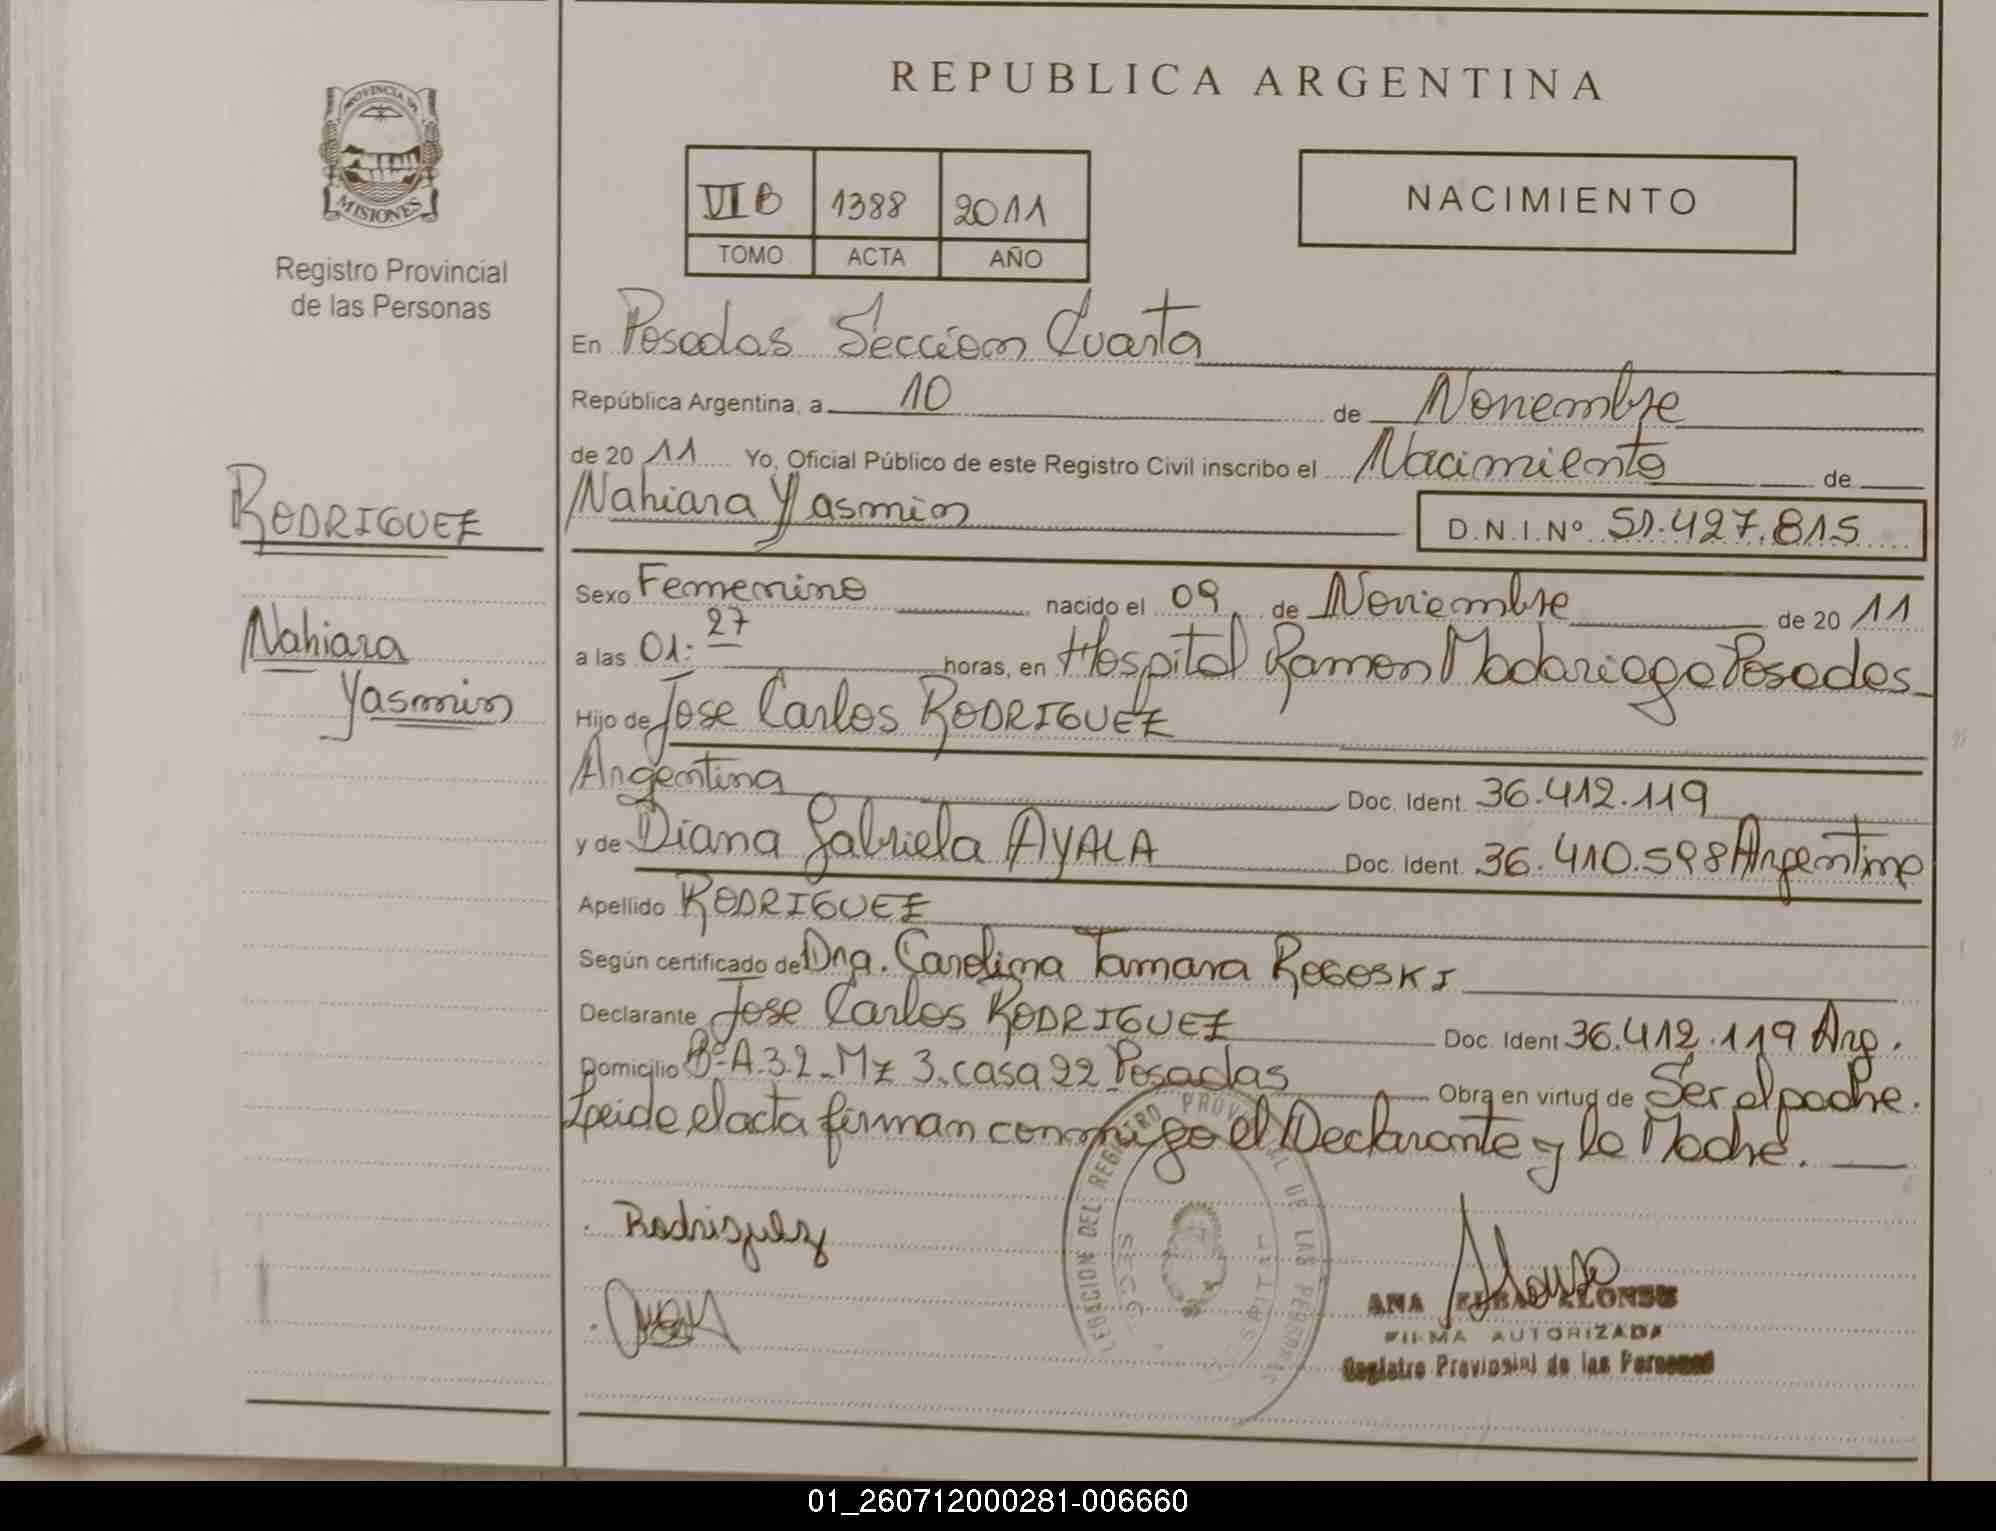 REPUBLICA ARGENTINA
PROVINCIA DE
MISIONES
Registro Provincial
de las Personas
VI B 1388 2011
TOMO ACTA AÑO
NACIMIENTO
RODRIGUEZ
Nahiara
Yasmin
En Posadas Sección Cuarta
República Argentina, a 10 de Noviembre
de 20 11 Yo, Oficial Público de este Registro Civil inscribo el Nacimiento de
Nahiara Yasmin D.N.I.Nº 51.427.815
Sexo Femenino nacido el 09 de Noviembre de 20 11
a las 01:27 horas, en Hospital Ramon Madariaga Posadas
Hijo de Jose Carlos RODRIGUEZ
Argentina Doc. Ident. 36.412.119
y de Diana Gabriela AYALA Doc. Ident. 36.410.598 Argentina
Apellido RODRIGUEZ
Según certificado de Dra. Carolina Tamara ROGOSKI
Declarante Jose Carlos RODRIGUEZ Doc. Ident 36.412.119 Arg.
Domicilio Bº A.3.2 Mz 3. casa 22 Posadas Obra en virtud de Ser el padre.
Leida el acta firman conmigo el Declarante y la Madre.
Rodriguez
ANA ALONSO
FIRMA AUTORIZADA
Registro Provincial de las Personas
01_260712000281-006660